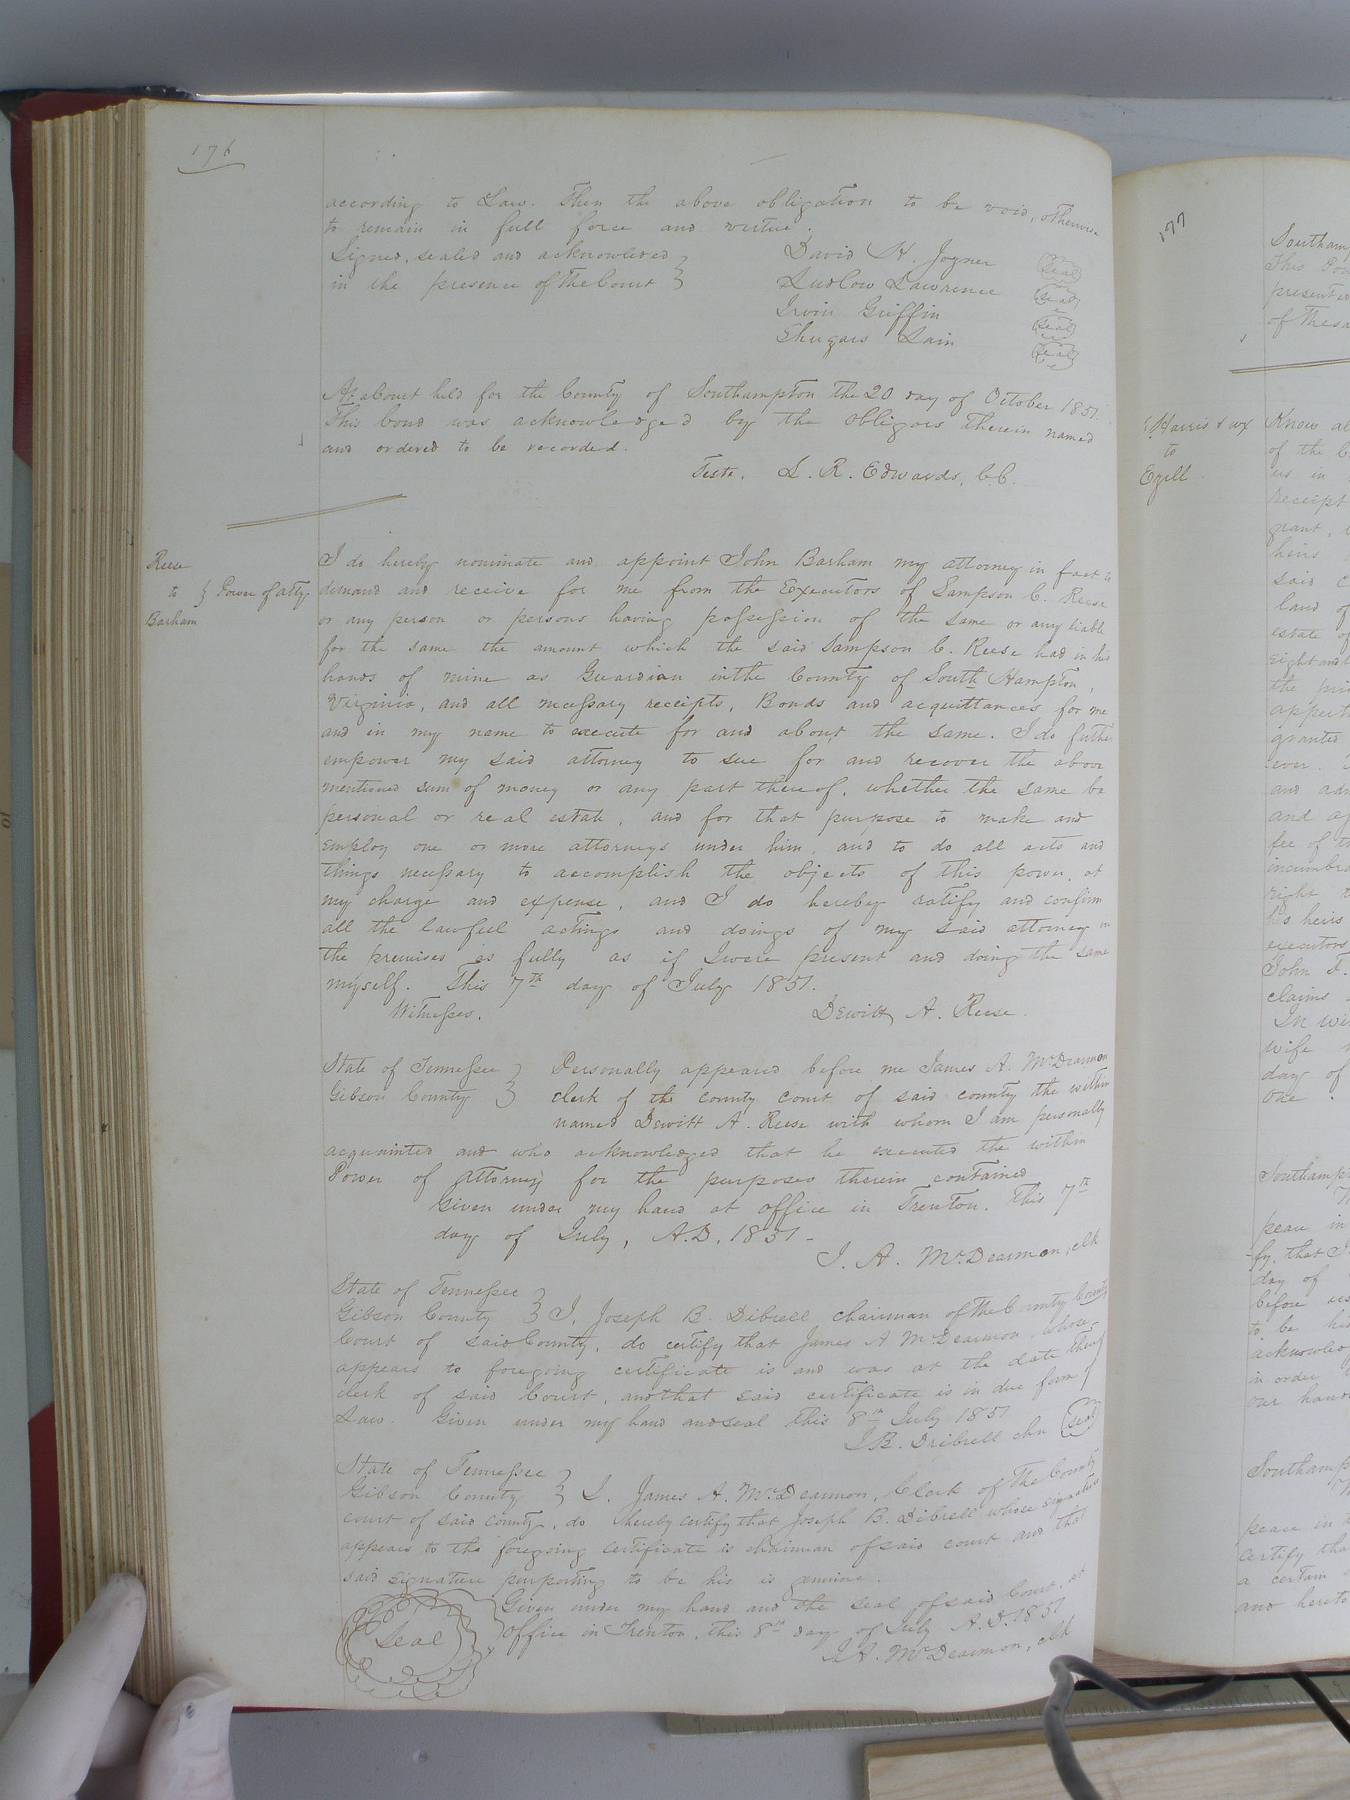 176
according to Law. Then the above obligation to be void, otherwise
to remain in full force and virtue.
Signed, sealed and acknowledged
in the presence of the Court
David H. Joyner Seal
Ludlow Lawrence Seal
Irvin Griffin Seal
Lain Seal
At a Court held for the County of Southampton the 20 day of October 1851
This bond was acknowledged by the obligors therein named
and ordered to be recorded.
Teste. L. R. Edwards, C.C.
Reese
to } Power of atty.
Barham
I do hereby nominate and appoint John Barham my attorney in fact to
demand and receive for me from the Executors of Sampson C. Reese
or any person or persons having possession of the same or any liable
for the same the amount which the said Sampson C. Reese had in his
hands of mine as Guardian in the County of South Hampton,
Virginia, and all necessary receipts, Bonds and acquittances for me
and in my name to execute for and about the same. I do further
empower my said attorney to sue for and recover the above
mentioned sum of money or any part thereof, whether the same be
personal or real estate, and for that purpose to make and
employ one or more attorneys under him, and to do all acts and
things necessary to accomplish the objects of this power, at
my charge and expense, and I do hereby ratify and confirm
all the lawful actings and doings of my said attorney in
the premises as fully as if I were present and doing the same
myself. This 7th day of July 1851.
Witnesses. Dewitt A. Reese.
State of Tennessee } Personally appeared before me James A. McDearmon
Gibson County } clerk of the county court of said county the within
named Dewitt A. Reese with whom I am personally
acquainted and who acknowledged that he executed the within
Power of Attorney for the purposes therein contained
Given under my hand at office in Trenton. This 7th
day of July, A.D. 1851-
J. A. McDearmon, clk
State of Tennessee
Gibson County } I, Joseph B. Dibrell chairman of the County County
Court of said County, do certify that James A McDearmon, whose
appears to foregoing certificate is and was at the date thereof
clerk of said Court, and that said certificate is in due form of
Law. Given under my hand and seal this 8th July 1851
J.B. Dribrell chn Seal
State of Tennessee
Gibson County } I. James A. McDearmon, Clerk of the County
court of said county, do hereby certify that Joseph B. Dibrell whose signature
appears to the foregoing certificate is chairman of said court and that
said signature purporting to be his is genuine.
Seal
Given under my hand and the seal of said Court, at
office in Trenton, this 8th day of July A.D. 1851
J.A. McDearmon, clk
177
Southam
This Pow
presente
of the sa
Harris & ux
to
Ezell
Know al
of the C
us in
receipt
grant,
heirs
said
land of
estate of
eight and
the pri
appert
granted
ever.
and adm
and a
fee of th
incumbra
right
his heirs
executors
John F.
claims
In wi
wife
day of
one.
Southamp
peace in
fy, that J
day of
before us
to be his
acknowled
in order
our hand
Southamp
peace in
certify tha
a certain
and hereto